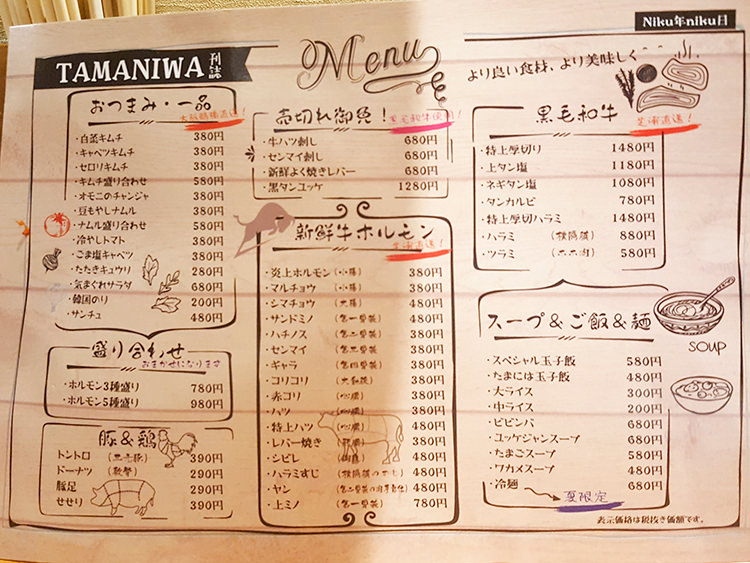 Niku年niku日
TAMANIWA 刊誌
Menu
より良い食材、より美味しく
おつまみ・一品
大阪鶴橋直送!
・白菜キムチ 380円
・キャベツキムチ 380円
・セロリキムチ 380円
・キムチ盛り合わせ 580円
・オモニのチャンジャ 380円
・豆もやしナムル 380円
・ナムル盛り合わせ 580円
・冷やしトマト 380円
・ごま塩キャベツ 380円
・たたきキュウリ 280円
・気まぐれサラダ 680円
・韓国のり 200円
・サンチュ 480円
盛り合わせ
おまかせになります
・ホルモン3種盛り 780円
・ホルモン5種盛り 980円
豚&鶏
トントロ 390円
ドーナツ 290円
豚足 290円
せせり 390円
売切れ御免!
黒毛和牛使用!
・牛ハツ刺し 680円
・センマイ刺し 680円
・新鮮よく焼きレバー 680円
・黒タンユッケ 1280円
新鮮牛ホルモン
芝浦直送!
・炎上ホルモン (小腸) 380円
・マルチョウ (小腸) 380円
・シマチョウ (大腸) 480円
・サンドミノ (第一胃袋) 480円
・ハチノス (第二胃袋) 380円
・センマイ (第三胃袋) 380円
・ギャラ (第四胃袋) 380円
・コリコリ (大動脈) 380円
・赤コリ 380円
・ハツ (心臓) 380円
・特上ハツ (心臓) 480円
・レバー焼き (肝臓) 480円
・シビレ 480円
・ハラミすじ (横隔膜のすじ) 480円
・ヤン 480円
・上ミノ (第一胃袋) 780円
黒毛和牛
芝浦直送!
・特上厚切り 1480円
・上タン塩 1180円
・ネギタン塩 1080円
・タンカルビ 780円
・特上厚切ハラミ 1480円
・ハラミ (横隔膜) 880円
・ツラミ (ホホ肉) 580円
スープ&ご飯&麺
SOUP
・スペシャル玉子飯 580円
・たまには玉子飯 480円
・大ライス 300円
・中ライス 200円
・ビビンバ 680円
・ユッケジャンスープ 680円
・たまごスープ 580円
・ワカメスープ 480円
・冷麺 680円
夏限定
表示価格は税抜き価額です。